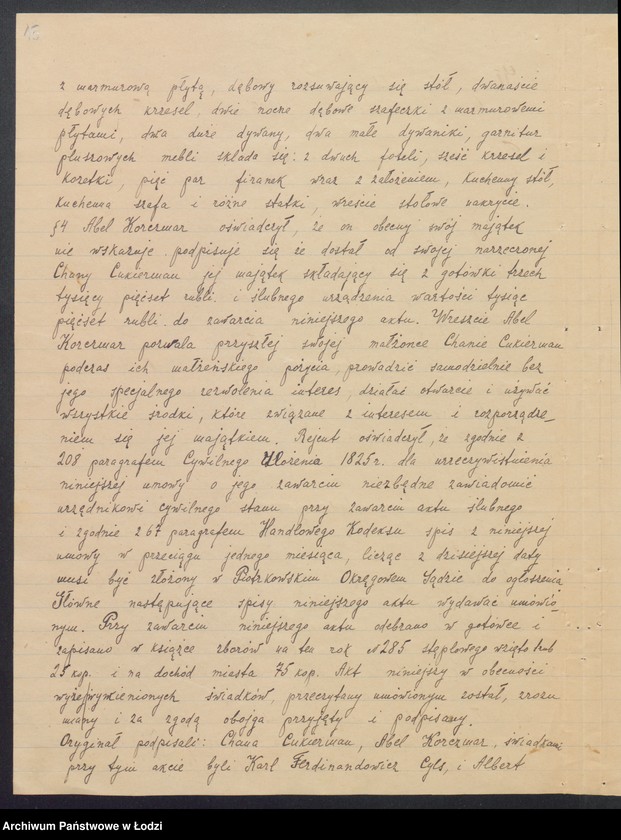 15
z marmurową płytą, dębowy rozsuwający się stół, dwanaście
dębowych krzeseł, dwie nocne dębowe szafeczki z marmurowemi
płytami, dwa duże dywany, dwa małe dywaniki, garnitur
pluszowych mebli składa się: z dwuch foteli, sześć krzeseł i
kozetki, pięć par firanek wraz z założeniem, kuchenny stół,
kuchenna szafa i różne statki, wreście stołowe nakrycie.
§4. Abel Korczwar oświadczył, że on obecny swój majątek
nie wskazuje. podpisuje się że dostał od swojej narzeczonej
Chany Cukierman jej majątek składający się z gotówki trzech
tysięcy pięćset rubli i ślubnego urządzenia wartości tysiąc
pięćset rubli do zawarcia niniejszego aktu. Wreszcie Abel
Korczwar pozwala przyszłej swojej małżonce Chanie Cukierman
podczas ich małżeńskiego pożycia, prowadzić samodzielnie bez
jego specjalnego zezwolenia interes, działać otwarcie i używać
wszystkie środki, które związane z interesem i rozporządze-
niem się jej majątkiem. Rejent oświadczył, że zgodnie z
208 paragrafem Cywilnego Ułożenia 1825 r. dla urzeczywistnienia
niniejszej umowy o jego zawarciu niezbędne zawiadomić
urzędnikowi cywilnego stanu przy zawarciu aktu ślubnego
i zgodnie z 67 paragrafem Handlowego Kodeksu spis z niniejszej
umowy w przeciągu jednego miesiąca, licząc z dzisiejszej daty
musi być złożony w Piotrkowskim Okręgowem Sądzie do ogłoszenia
Główne następujące spisy niniejszego aktu wydawać umówio-
nym. Przy zawarciu niniejszego aktu odebrano w gotowce i
zapisano w książce zborów na ten rok N285 stęplowego wzięto
25 kop. i na dochód miasta 75 kop. Akt niniejszy w obecności
wyżejwymienionych świadków, przeczytany umówionym został, zrozu
miany i za zgodą obojga przyjęty i podpisany.
Oryginał podpisali: Chana Cukierman, Abel Korczwar. świadkami
przy tym akcie byli Karl Ferdinandowicz Cyls, i Albert
Archiwum Państwowe w Łodzi